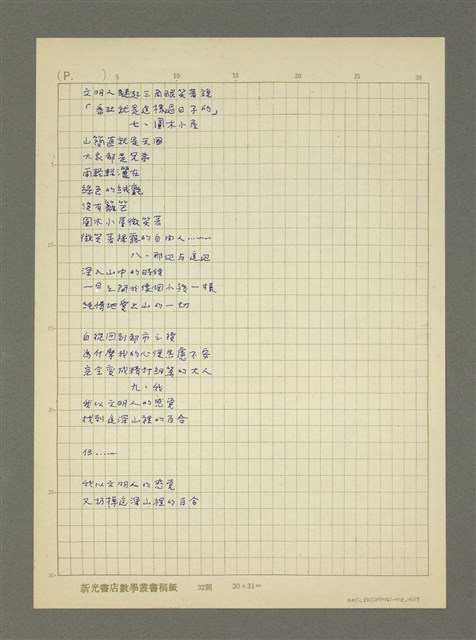 (P. )
5 10 15 20 25 30
文明人瞇起三角眼笑著說
「番社就是這樣過日子的」
七、圓木小屋
山簡直就是天國
大家都是兄弟
雨輕輕灑在
綠色的絨氈
沒有籬笆
圓木小屋微笑著
微笑著裸露的自由人……
八、那边与這边
深入山中的時候
一日之間我像個小孩一樣
純情地愛上山的一切
自從回到都市之後
為什麼我的心便焦慮不安
完全变成精打細算的大人
九、我
我以文明人的感覚
找到這深山裡的百合
但……
我以文明人的感覚
又扔掉這深山裡的百合
新光書店數學叢書稿紙 32開 30×31